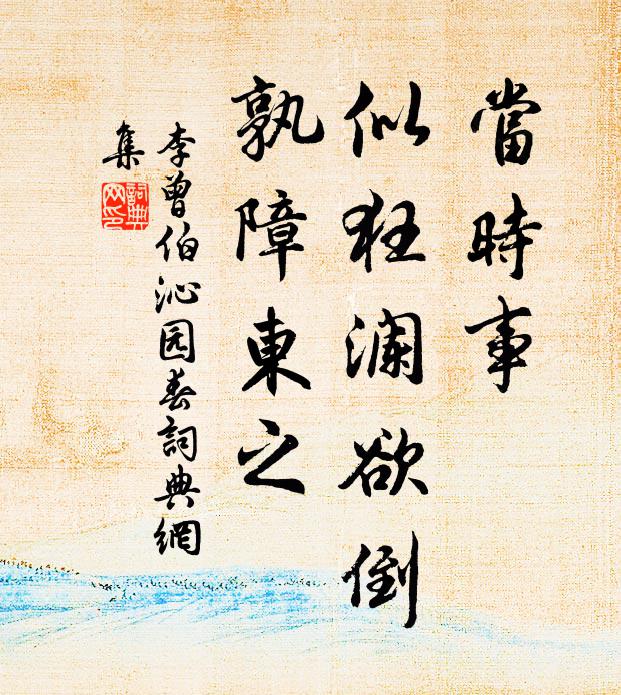 當時事
似狂澜欲倒
孰障東之
李曾伯沁园春詞典網
集
詞典
网印